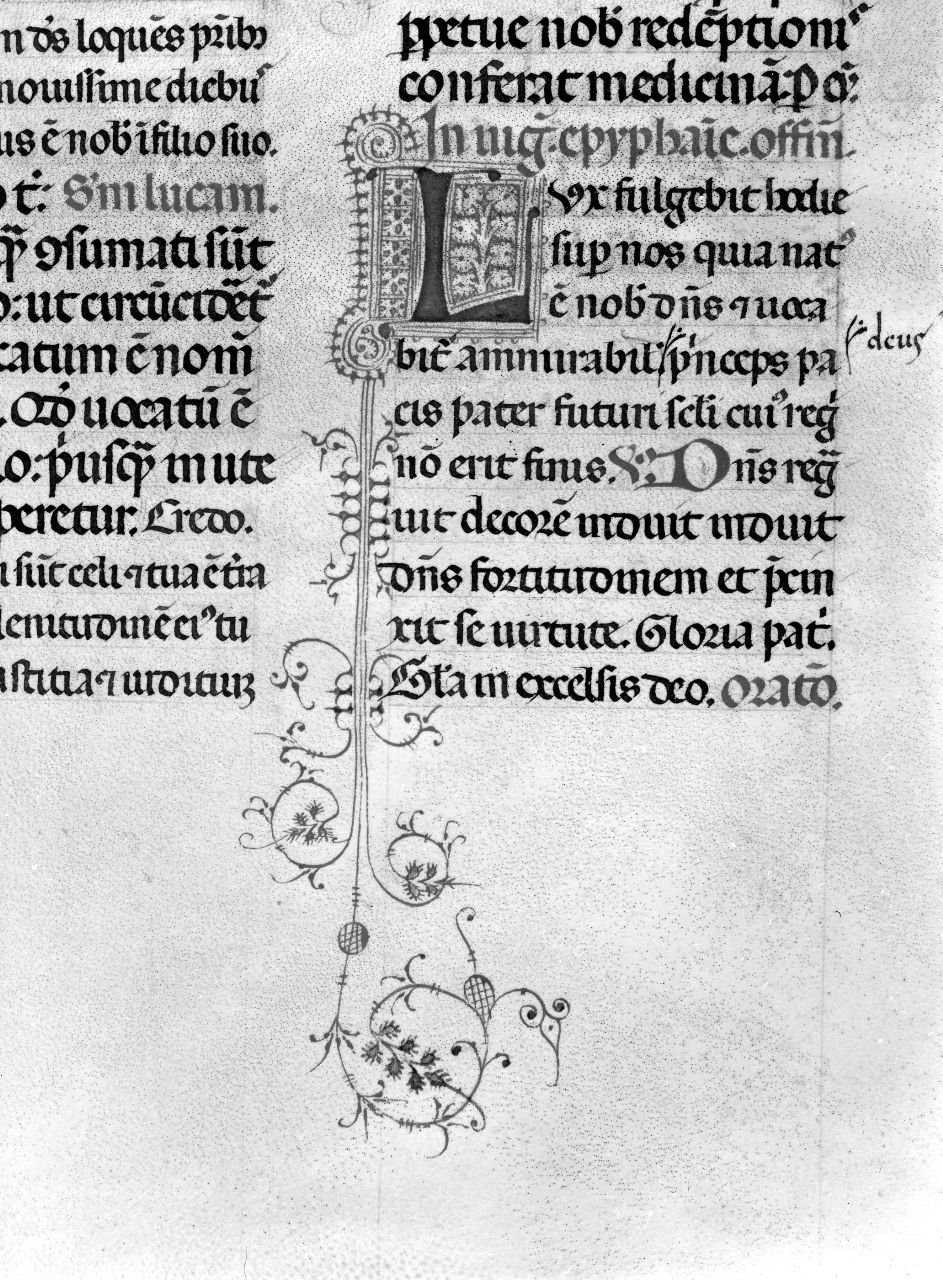 n dˢ loquēs pr̄ibꝫ
nouissime diebus
us ē nob̄ ī filio suo.
o t̄: S'm lucam.
qꝫ ꝯsumati sūt
o: ut circūcidēt᷑
catum ē nom̄
. Qđ uocatū ē
o: pͥusqꝫ in ute
beretur. Credo.
i sūt celi ⁊ tua ē t̄ra
lenitudinē eiꝰ tu
ustitia ⁊ iudiciuꝫ
ꝑpetue nob̄ redēptionis
conferat medicinā. P. d.
In uig̃. epyphaīe. offm̄.
LVx fulgebit hodie
suꝑ nos quia natꝰ
ē nob̄ dn̄s ⁊ uoca
bit᷑ ammirabil' pͥnceps pa
deus
cis pater futuri scl̄i cuiꝰ reg̃
nō erit finis. V. Dn̄s reg̃
uit decorē induit induit
dn̄s fortitudinem et p̄cin
xit se uirtute. Gloria pat̄.
Gl'a in excelsis deo. Oratō.